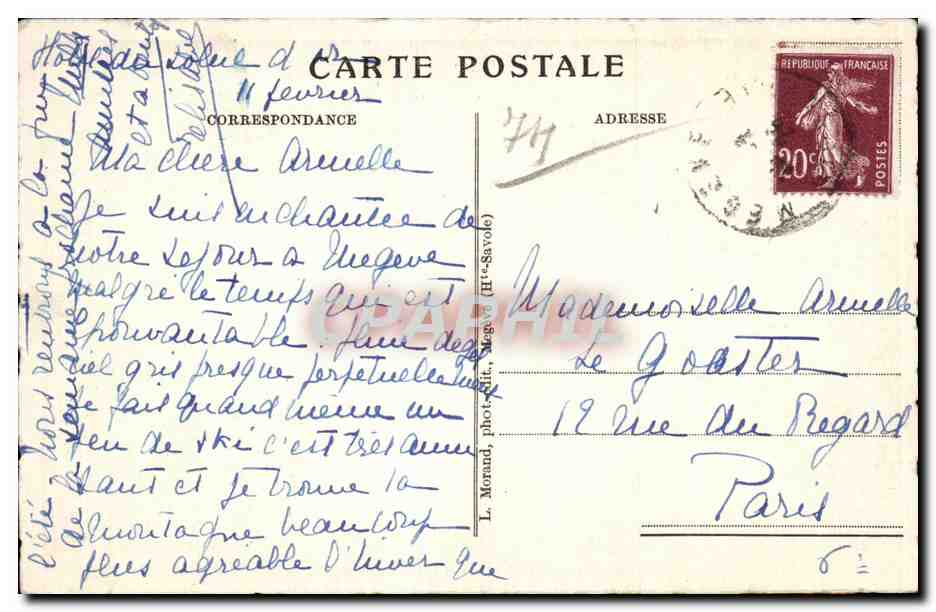 CARTE POSTALE
CORRESPONDANCE
ADRESSE
Hotel du Soleil d'or
11 fevrier
Ma chère Armelle
Je suis enchantée de
notre sejour a Megeve
malgré le temps qui est
epouvantable.
ciel gris presque perpetuellement
Je fais quand même un
peu de ski c'est très amu
sant et je trouve la
montagne beaucoup
plus agréable l'hiver que
l'été Nous rentrons a la fin
de la semaine prochaine
L. Morand, phot.-édit., Megève (Hte-Savoie)
74
RÉPUBLIQUE FRANÇAISE
20c
POSTES
MEGEVE
Mademoiselle Armelle
Le Goaster
12 rue du Regard
Paris
CPAPHIL